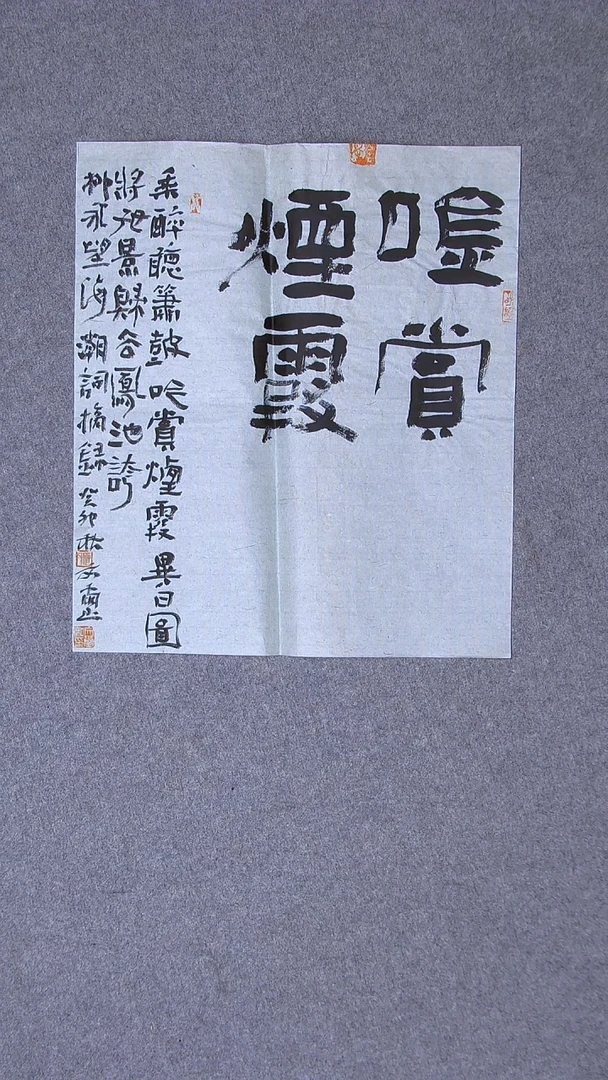 唫賞
煙霞
乘醉聽簫皷吟賞煙霞異日圖
將好景歸去鳳池誇
柳永望海潮詞摘錄癸卯秋